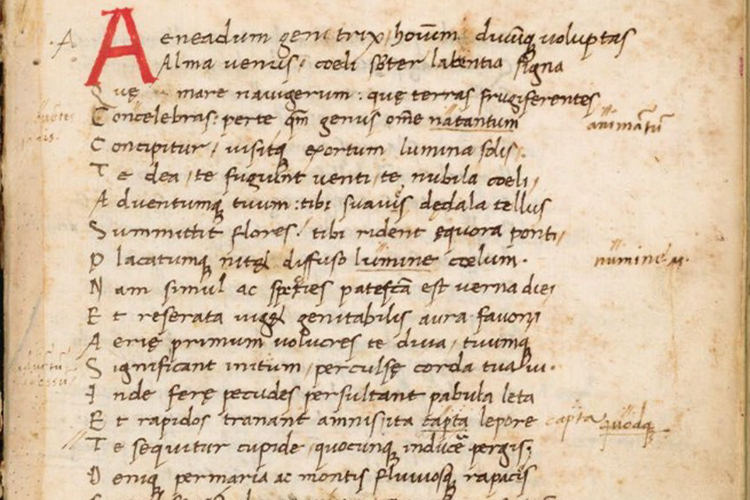 Aeneadum genitrix, hoium diuuq uoluptas
Alma uenus, coeli sbter labentia signa
Que mare nauigerum: que terras frugiferentes
Concelebras: perte qm genus ome natantum animatu
Concipitur, uisitq exortum lumina solis.
Te dea, te fugiunt uenti, te nubila coeli,
Aduentumq tuum: tibi suauis dedala tellus
Summittit flores, tibi rident equora ponti,
Placatumq nitet diffuso lumine coelum. numine
Nam simul ac species patefcta est uerna diei
Et reserata uiget genitabilis aura fauoni
Aerie primum uolucres te diua, tuumq
Significant initum, perculse corda tua ui.
Inde fere pecudes persultant pabula leta
Et rapidos tranant amnis, ita capta lepore capta quodq
Te sequitur cupide, quocunq inducere pergis;
Deniq permaria ac montis fluuiosq rapacis